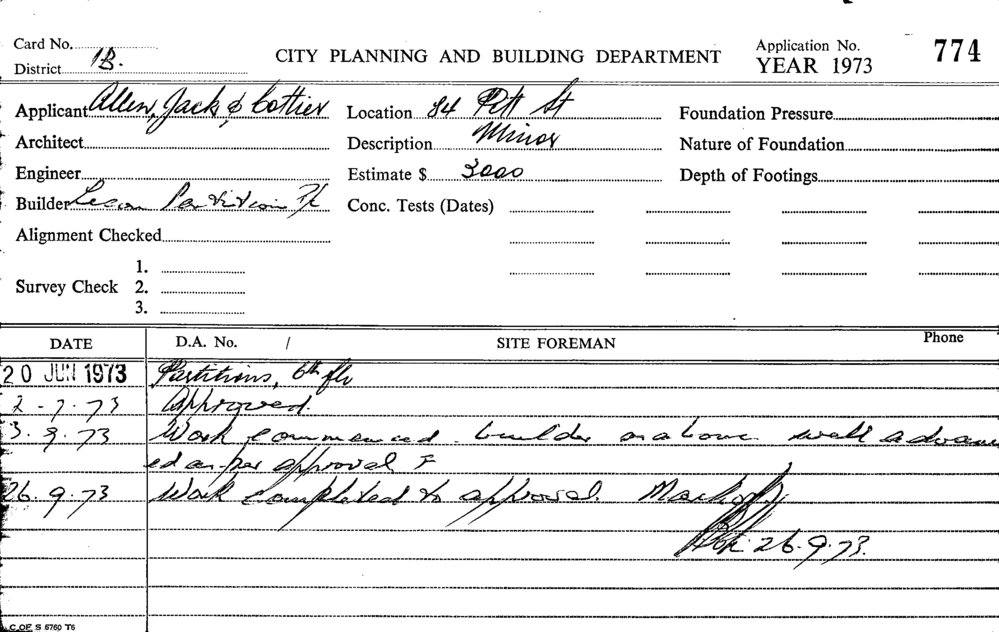 Card No.
District 1B.
CITY PLANNING AND BUILDING DEPARTMENT
Application No. 774
YEAR 1973
Applicant Allen, Jack & Cottier
Location 84 Pitt St
Foundation Pressure
Architect
Description Minor
Nature of Foundation
Engineer
Estimate $ 3000
Depth of Footings
Builder Partition P/L
Conc. Tests (Dates)
Alignment Checked
Survey Check 1.
2.
3.
DATE D.A. No. / SITE FOREMAN Phone
20 JUN 1973 Partitions, 6th flr
2-7.73 Approved.
3.9.73 Work commenced. builder as above well advanc
ed as per approval
26.9.73 Work completed to approval.
26.9.73.
C OF S 5760 T6